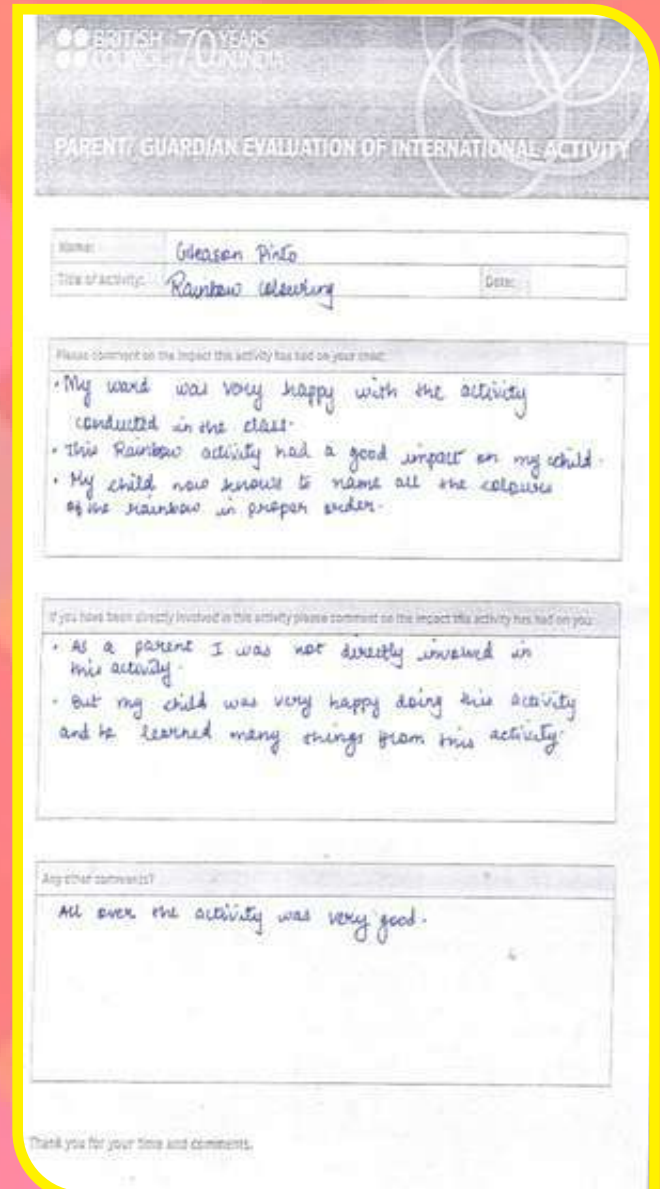 BRITISH 70 YEARS
COUNCIL IN INDIA
PARENT/ GUARDIAN EVALUATION OF INTERNATIONAL ACTIVITY
Name: Gleason Pinto
Title of activity: Rainbow colouring Date:
Please comment on the impact this activity has had on your child:
• My ward was very happy with the activity
conducted in the class.
• This Rainbow activity had a good impact on my child.
• My child now knows to name all the colours
of the rainbow in proper order.
If you have been directly involved in this activity please comment on the impact this activity has had on you:
• As a parent I was not directly involved in
this activity.
• But my child was very happy doing this activity
and he learned many things from this activity.
Any other comments?
All over the activity was very good.
Thank you for your time and comments.